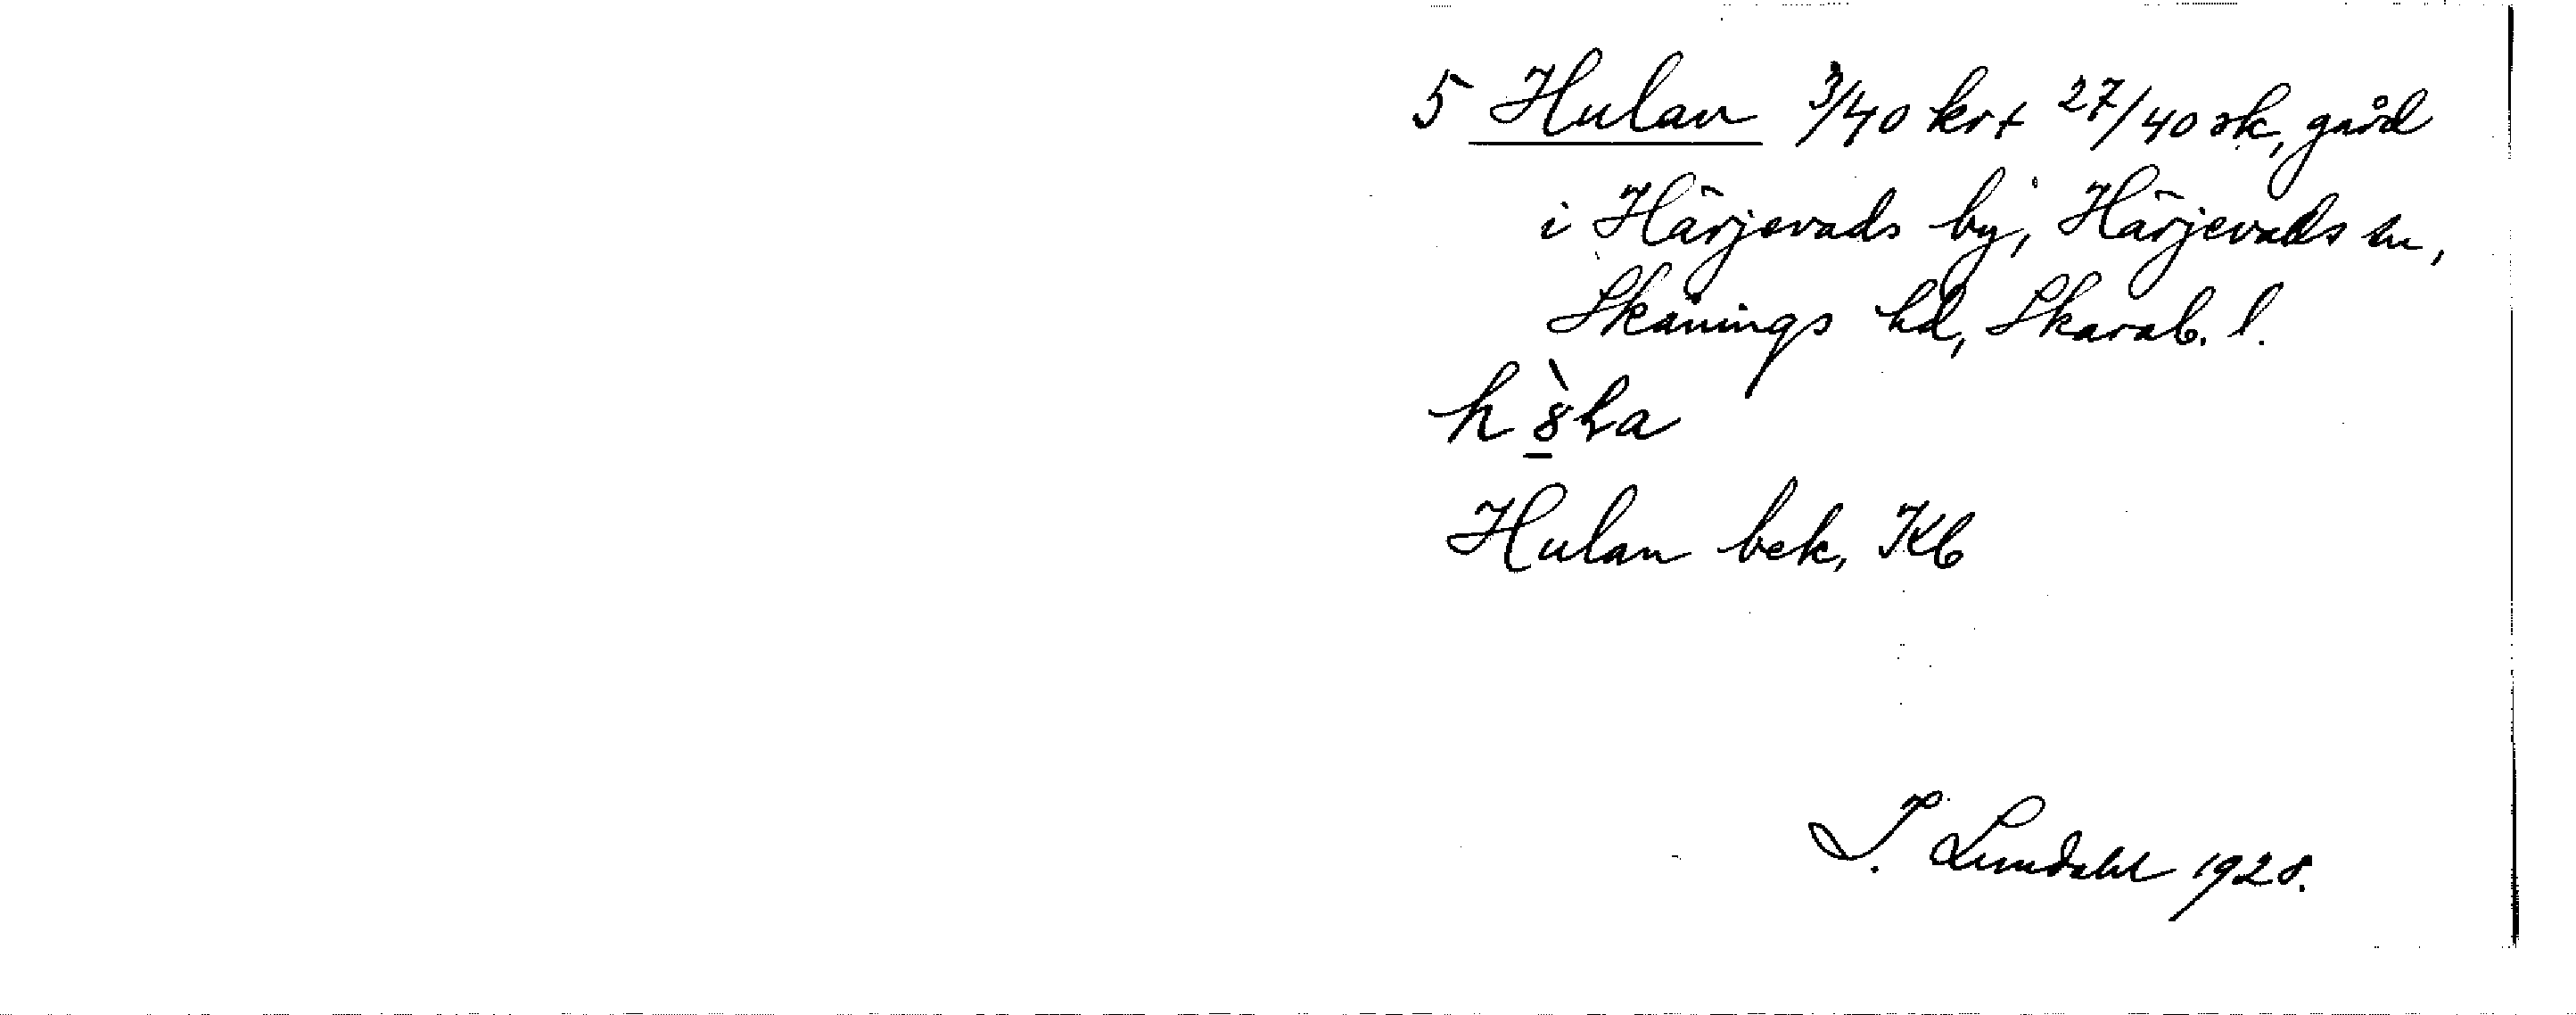 5 Hulan 3/40 kr + 27/40 sk, gård
i Härjevads by, Härjevads sn,
Skånings hd, Skarab. l.
Hulan bek, Kb
I. Lundahl 1928.